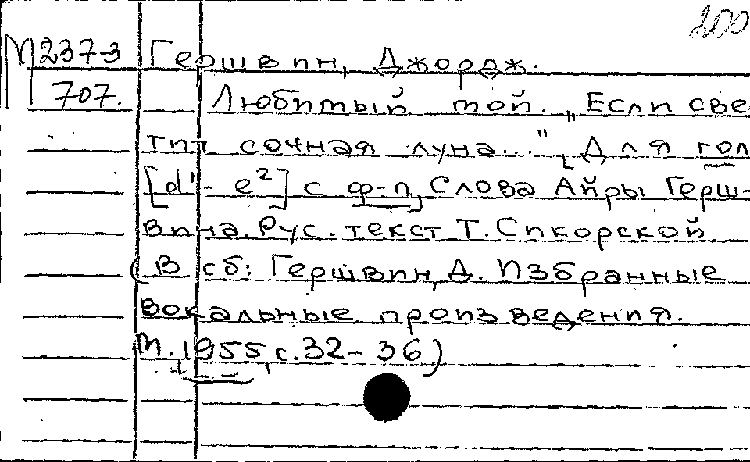 200
М 237-3 Гершвин, Джордж.
707. Любимый мой. „Если све-
тит сочная луна..." [Для гол.
[d'- e²] с ф-п, Слова Айры Герш-
вина. Рус. текст Т. Сикорской
(В сб: Гершвин, Д. Избранные
вокальные произведения.
М. 1955, с. 32-36)